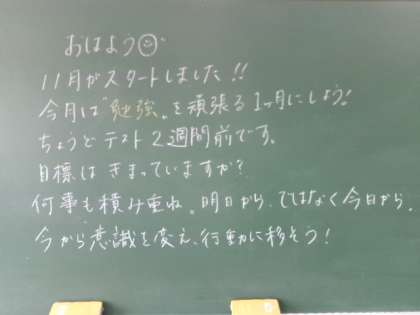 おはよう☺
11月がスタートしました!!
今月は"勉強"を頑張る1ヶ月にしよう!
ちょうどテスト2週間前です。
目標はきまっていますか?
何事も積み重ね。明日から、ではなく今日から、
今から意識を変え、行動に移そう!